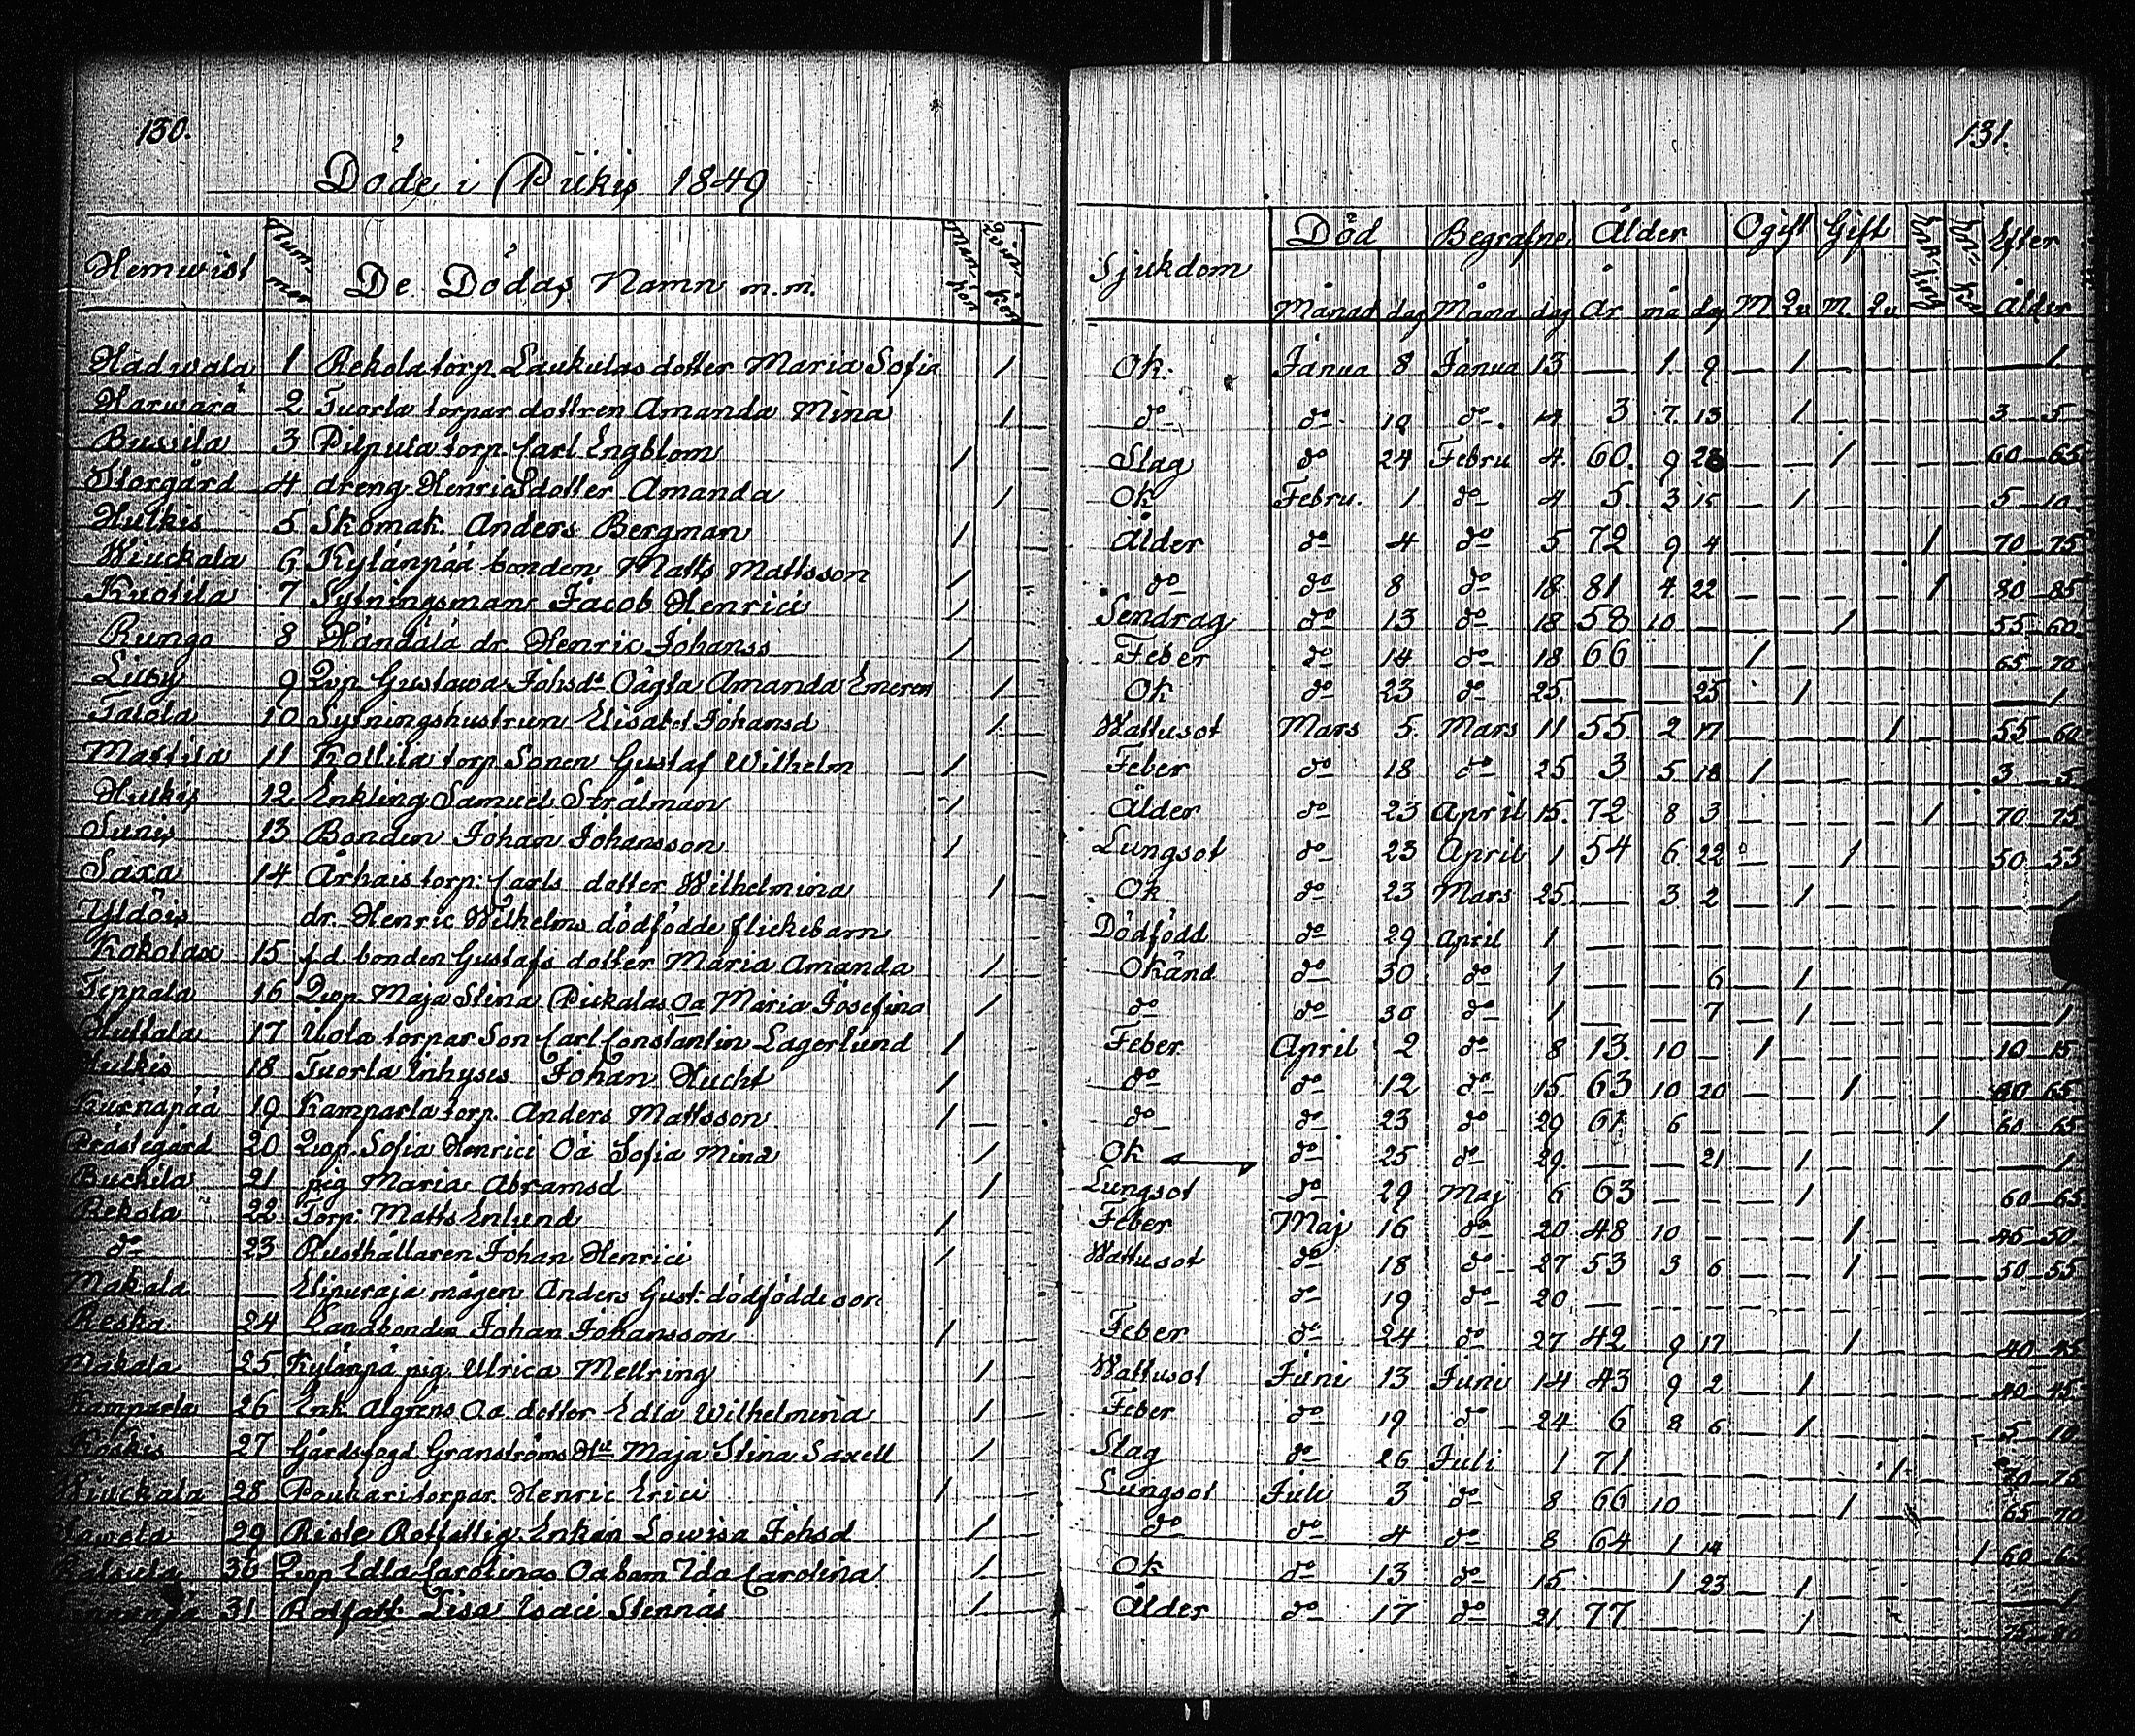 130.
Döde i Piikis 1849
Hemwist Num-mer De Dödas Namn m.m. Man-kön Qvin-kön
Hadwala 1 Rekola torp. Laukulas dotter Maria Sofia 1
Harwarö 2 Tuorla torpar dottren Amanda Mina 1
Bussila 3 Pilpula torp. Carl Engblom 1
Storgård 4 dreng Henrics dotter Amanda 1
Hulkis 5 Skomak. Anders Bergman 1
Wiuckala 6 Kylänpää bonden Matts Mattsson 1
Kuotila 7 Sytningsman Jacob Henrici 1
Rungo 8 Händälä dr. Henric Johanss 1
Lilby 9 Qvp. Gustawa Johsd. Oägta Amanda Emeren 1
Talola 10 Sytningshustrun Elisabet Johansd 1
Mattila 11 Kottila torp. Sonen Gustaf Wilhelm 1
Hukis 12 Enkling Samuel Strålman 1
Sunis 13 Bonden Johan Johansson 1
Saxa 14 Århais torp: Carls dotter Wilhelmina 1
Yldöis dr. Henric Wilhelms dödfödde flickebarn
Kokolax 15 f.d. bonden Gustafs dotter Maria Amanda 1
Teppala 16 Qvp. Maja Stina Pickalas Oa Maria Josefina 1
Huttala 17 Uota torpar Son Carl Constantin Lagerlund 1
Hulkis 18 Tuorla Inhyses Johan Hucht 1
Kurnapää 19 Kamparla torp. Anders Mattsson 1
Prästegård 20 Qvp. Sofia Henrici Oä Sofia Mina 1
Buckila 21 pig Maria Abramsd 1
Rekola 22 Torp: Matts Enlund 1
do 23 Rusthållaren Johan Henrici 1
Makala — Elipuraja mågen Anders Gust: dödfödde son
Reska 24 Landbonden Johan Johansson 1
Makala 25 Kylänpä pig. Ulrica Mellring 1
Kamparla 26 Enk. Algrens Oa. dotter Edla Wilhelmina 1
Koskis 27 Gårdsfogd Granströms Hu Maja Stina Saxell 1
Wiuckala 28 Poukari torpar. Henric Erici 1
29 Riste Rotfattig Enkan Lowisa Johsd 1
30 Qvp Edla Carolinas Oa barn Ida Carolina 1
31 Rotfatt. Lisa Isaci Stennäs 1
131.
Sjukdom Död Begrafne Ålder Ogift Gift Efter
Månad dag Måna dag År må dag M Qv M. Qv Ålder
Ok. Janua 8 Janua 13 — 1 9 — 1 — 1
do do 19 do 14 3 7 13 1 3—5
Slag do 24 Febru 4 60 9 28 1 60—65
Ok Febru. 1 do 4 5 3 15 1 5—10
Ålder do 4 do 5 72 9 4 1 70—75
do do 8 do 18 81 4 22 1 80—85
Sendrag do 13 do 18 58 10 — 1 55—60
Feber do 14 do 18 66 — — 1 65—70
Ok do 23 do 25 — — 25 1 — 1
Wattusot Mars 5 Mars 11 55 2 17 1 55—60
Feber do 18 do 25 3 5 18 1 3—5
Ålder do 23 April 15 72 8 3 1 70—75
Lungsot do 23 April 1 54 6 22 1 50—55
Ok do 23 Mars 25 — 3 2 1 — 1
Dödfödd do 29 April 1 — — —
Okänd do 30 do 1 — — 6 1
do do 30 do 1 — — 7 1 — 1
Feber April 2 do 8 13 10 — 1 10—15
do do 12 do 15 63 10 20 1 60—65
do do 23 do 29 61 6 — 1 60—65
Ok do 25 do 29 — — 21 1 — 1
Lungsot do 29 Maj 6 63 — — 1 60—65
Feber Maj 16 do 20 48 10 — 1 45—50
Wattusot do 18 do 27 53 3 6 1 50—55
do 19 do 20 — — —
Feber do 24 do 27 42 9 17 1 40—45
Wattusot Juni 13 Juni 14 43 9 2 1 40—45
Feber do 19 do 24 6 8 6 1 5—10
Slag do 26 Juli 1 71 — — 1 70—75
Lungsot Juli 3 do 8 66 10 — 1 65—70
do do 4 do 8 64 1 14 1 60—65
Ok do 13 do 15 — 1 23 1 — 1
Ålder do 17 do 21 77 1